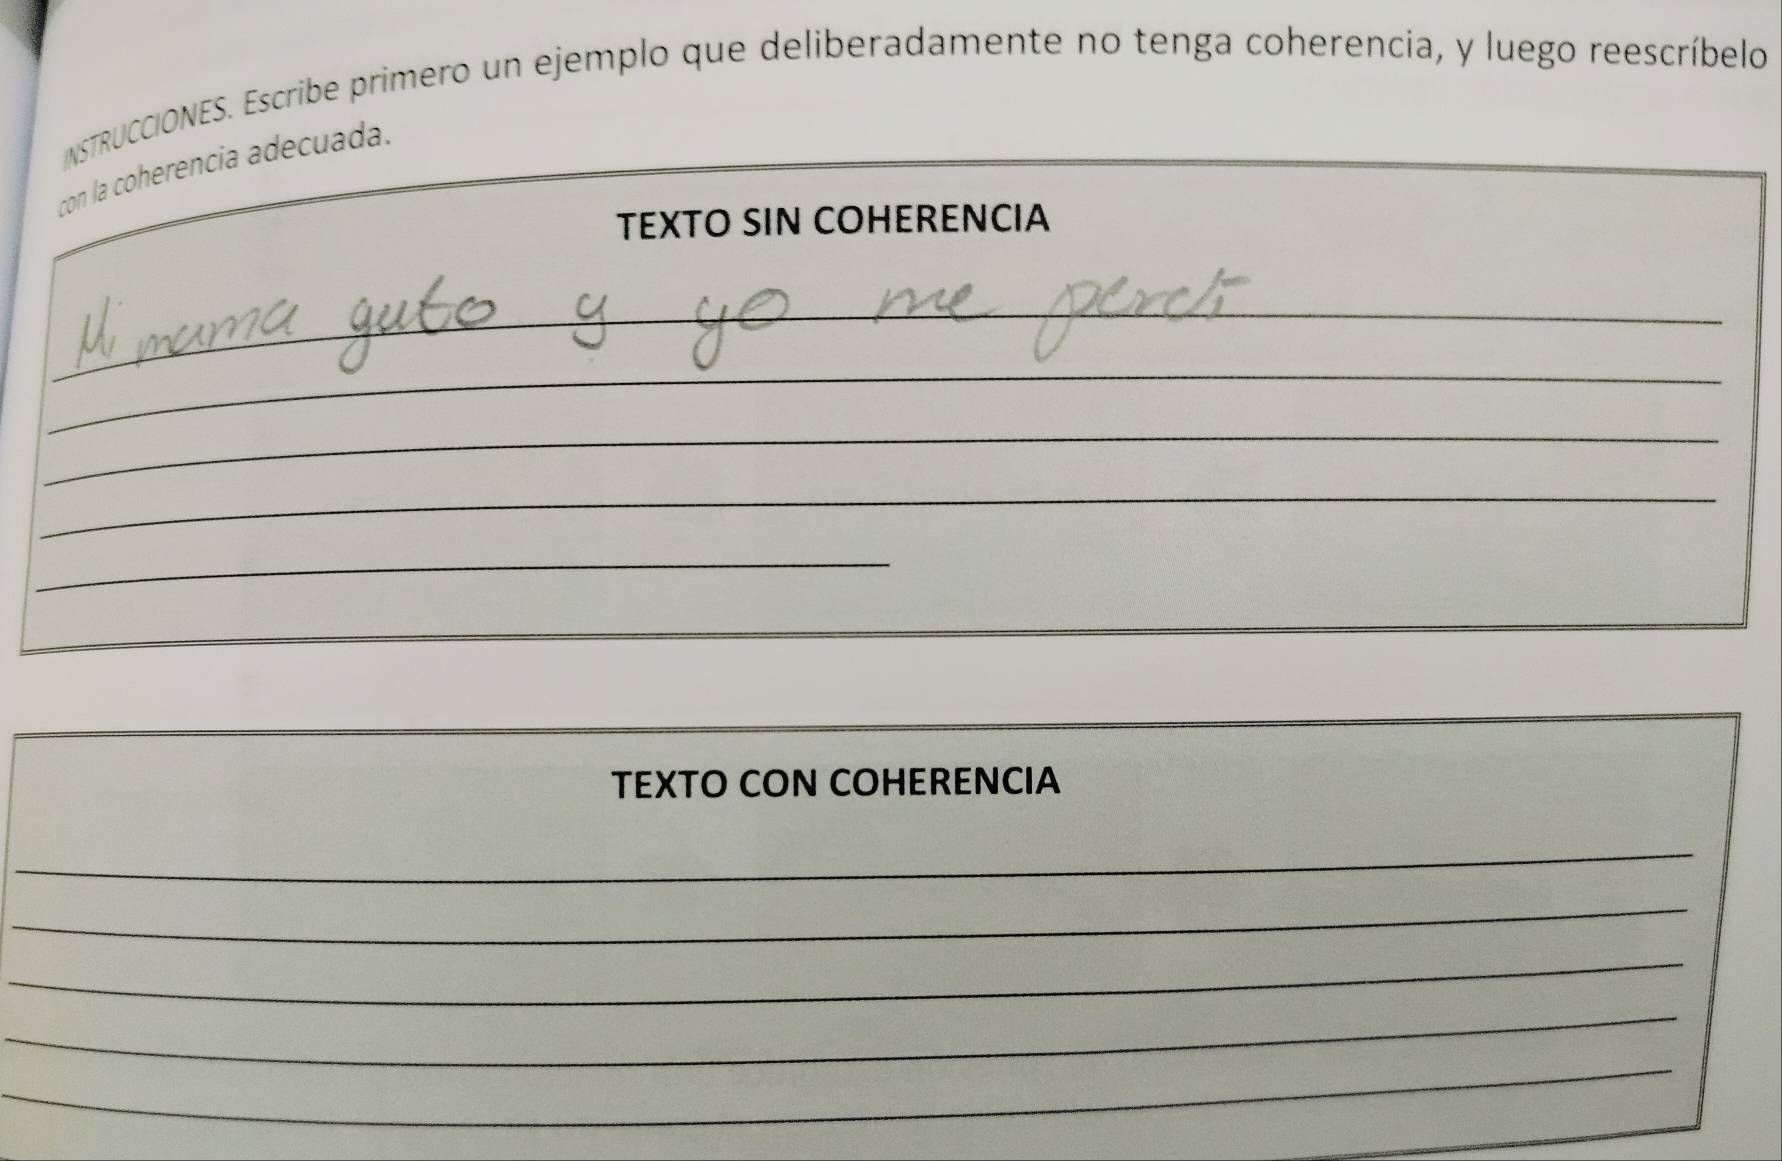 INSTRUCCIONES. Escribe primero un ejemplo que deliberadamente no tenga coherencia, y luego reescríbelo
con la coherencia adecuada.
TEXTO SIN COHERENCIA
Mi mama guto y yo me perdi
TEXTO CON COHERENCIA